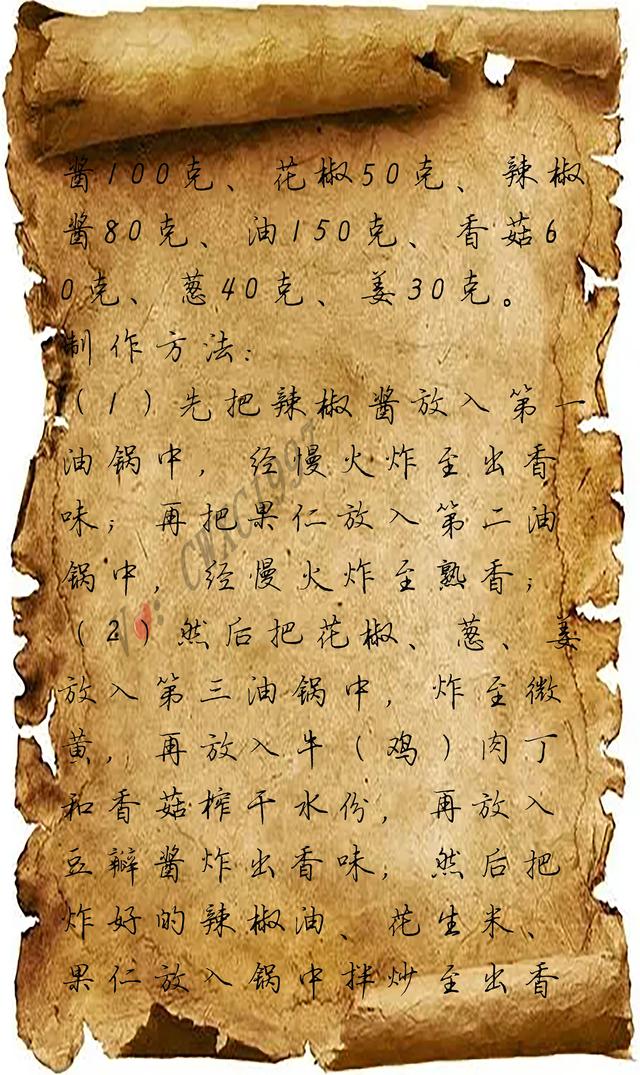 酱100克、花椒50克、辣椒
酱80克、油150克、香菇6
0克、葱40克、姜30克。
制作方法:
(1)先把辣椒酱放入第一
油锅中,经慢火炸至出香
味;再把果仁放入第二油
锅中,经慢火炸至熟香;
(2)然后把花椒、葱、姜
放入第三油锅中,炸至微
黄,再放入牛(鸡)肉丁
和香菇榨干水份,再放入
豆瓣酱炸出香味;然后把
炸好的辣椒油、花生米、
果仁放入锅中拌炒至出香